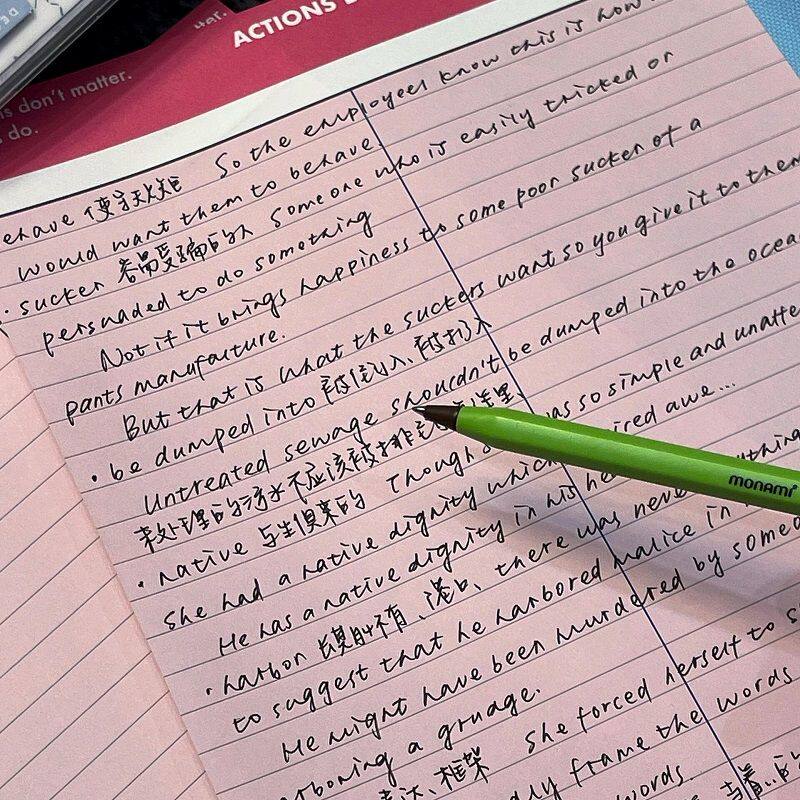 ACTIONS
s don't matter.
do.
ehave 使守规矩 So the employees know this is how
would want them to behave.
· sucker 容易受骗的人 Someone who is easily tricked or
persuaded to do something
Not if it brings happiness to some poor sucker of a
pants manufauture.
But that is what the suckers want so you give it to them
· be dumped into 被倒入、被扔入
Untreated sewage shouldn't be dumped into the ocea
未处理的污水不应该被排
· native 与生俱来的 Though was so simple and unatte
She had a native dignity which ired awe...
He has a native dignity in his he
· harbor 怀有、港口、there was never anything
to suggest that he harbored malice in
He might have been murdered by someo
arboring a grudge.
达、框架 She forced herself to s
dly frame the words
words.
monami